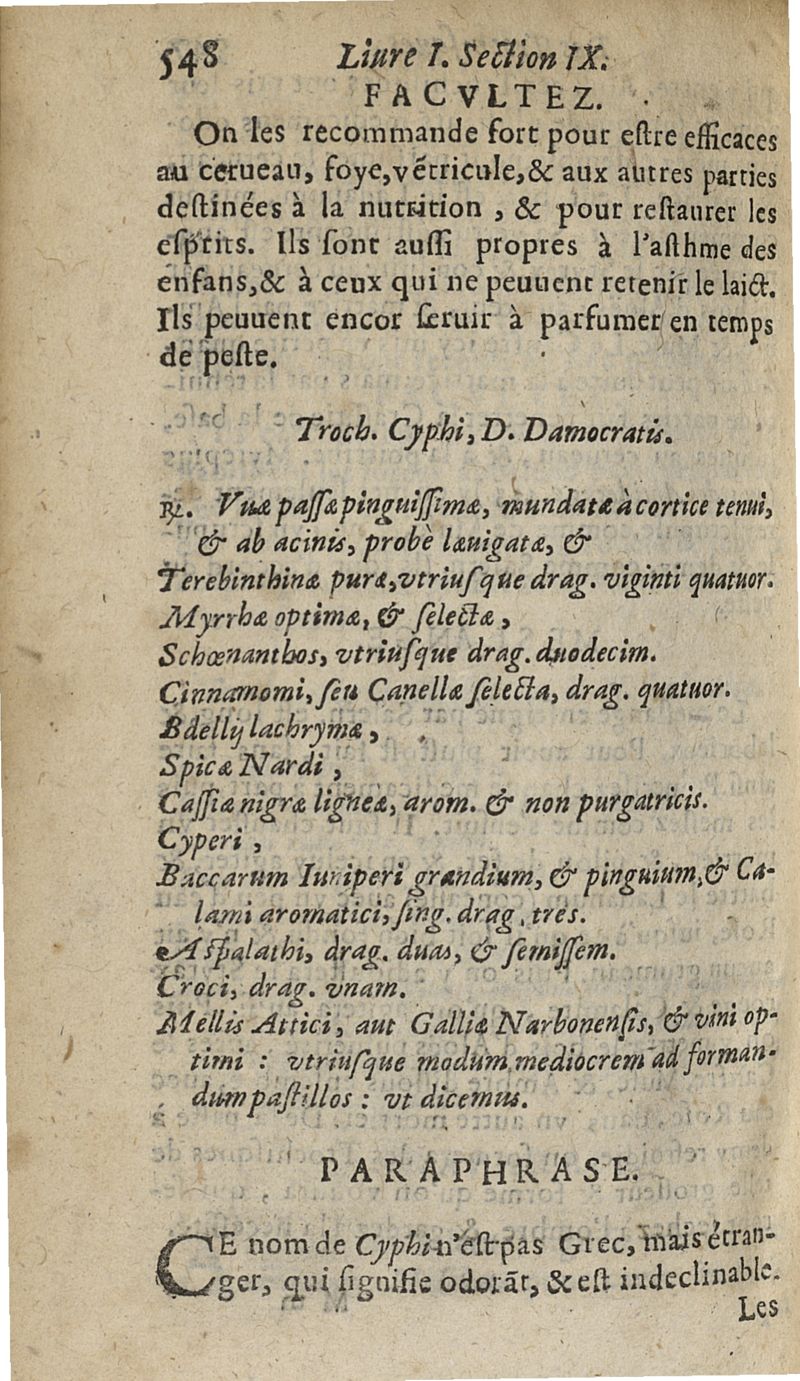 548 Liure I. Section IX.
FACVLTEZ.
On les recommande fort pour eſtre efficaces
au cerueau, foye, vẽtricule, & aux autres parties
deſtinées à la nutrition , & pour reſtaurer les
eſprits. Ils ſont auſſi propres à l'aſthme des
enfans, & à ceux qui ne peuuent retenir le laict.
Ils peuuent encor ſeruir à parfumer en temps
de peſte.
Troch. Cyphi, D. Damocratis.
℞. Vuæ paſſæ pinguiſſimæ, mundatæ à cortice tenui,
& ab acinis, probè læuigatæ, &
Terebinthinæ puræ, vtriuſque drag. viginti quatuor.
Myrrhæ optimæ, & ſelectæ ,
Schœnanthos, vtriuſque drag. duodecim.
Cinnamomi, ſeu Canellæ ſelecta, drag. quatuor.
Bdellij lachrymæ ,
Spicæ Nardi ,
Caſſiæ nigræ ligneæ, arom. & non purgatricis.
Cyperi ,
Baccarum Iuniperi grandium, & pinguium, & Ca-
lami aromatici, ſing. drag. tres.
Aſpalathi, drag. duas, & ſemiſſem.
Croci, drag. vnam.
Mellis Attici, aut Galliæ Narbonenſis, & vini op-
timi : vtriuſque modum mediocrem ad forman-
dum paſtillos : vt dicemus.
PARAPHRASE.
CE nom de Cyphi n'eſt pas Grec, mais étran-
ger, qui ſignifie odorãt, & eſt indeclinable.
Les